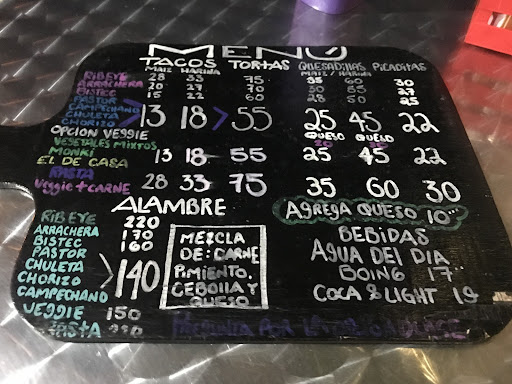 MENÚ
TACOS TORTAS QUESADILLAS PICADITAS
MAIZ HARINA MAIZ / HARINA
RIBEYE 28 33 75 35 60 30
ARRACHERA 20 27 70 30 55 27
BISTEC 15 22 60 28 50 25
PASTOR
CAMPECHANO
CHULETA 13 18 > 55 25 45 22
CHORIZO
OPCION VEGGIE QUESO QUESO
VEGETALES MIXTOS 20 20
MONKI 13 18 55 25 45 22
EL DE CASA
RASTA
Veggie + CARNE 28 33 75 35 60 30
ALAMBRE AGREGA QUESO 10
RIBEYE 220
ARRACHERA 170
BISTEC 160
PASTOR
CHULETA > 140
CHORIZO
CAMPECHANO
VEGGIE 150
RASTA
MEZCLA
DE: CARNE
PIMIENTO,
CEBOLLA Y
QUESO
BEBIDAS
AGUA DEL DIA
BOING 17
COCA & LIGHT 19
PREGUNTA POR